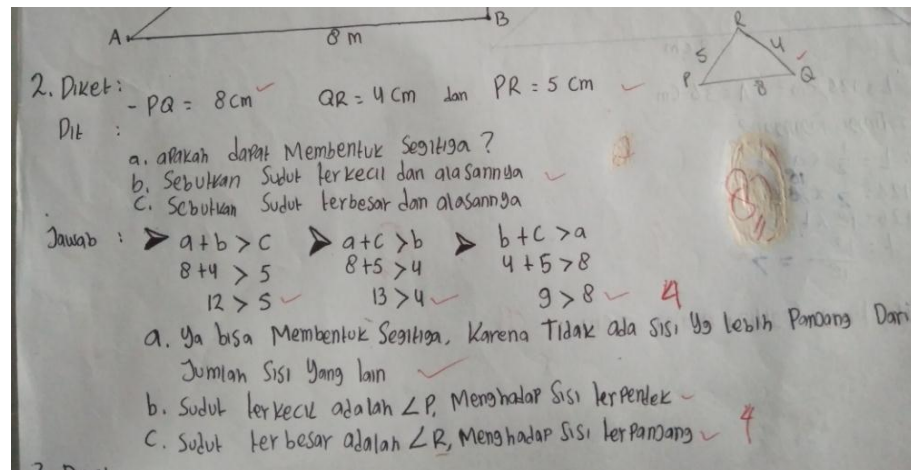 A
8 m
B
R
5
4
P
8
Q
2. Diket:
- PQ = 8 cm QR = 4 Cm dan PR = 5 Cm
Dit :
a. apakah dapat Membentuk Segitiga ?
b. Sebutkan Sudut terkecil dan alasannya
C. Sebutkan Sudut terbesar dan alasannya
Jawab : ➤ a+b > c ➤ a+c > b ➤ b+c > a
8+4 > 5 8+5 > 4 4+5 > 8
12 > 5 13 > 4 9 > 8 4
a. Ya bisa Membentuk Segitiga, Karena Tidak ada Sisi Yg Lebih Panjang Dari
Jumlah Sisi Yang lain
b. Sudut terkecil adalah ∠P, Menghadap Sisi terpendek
C. Sudut terbesar adalah ∠R, Menghadap Sisi terpanjang 4